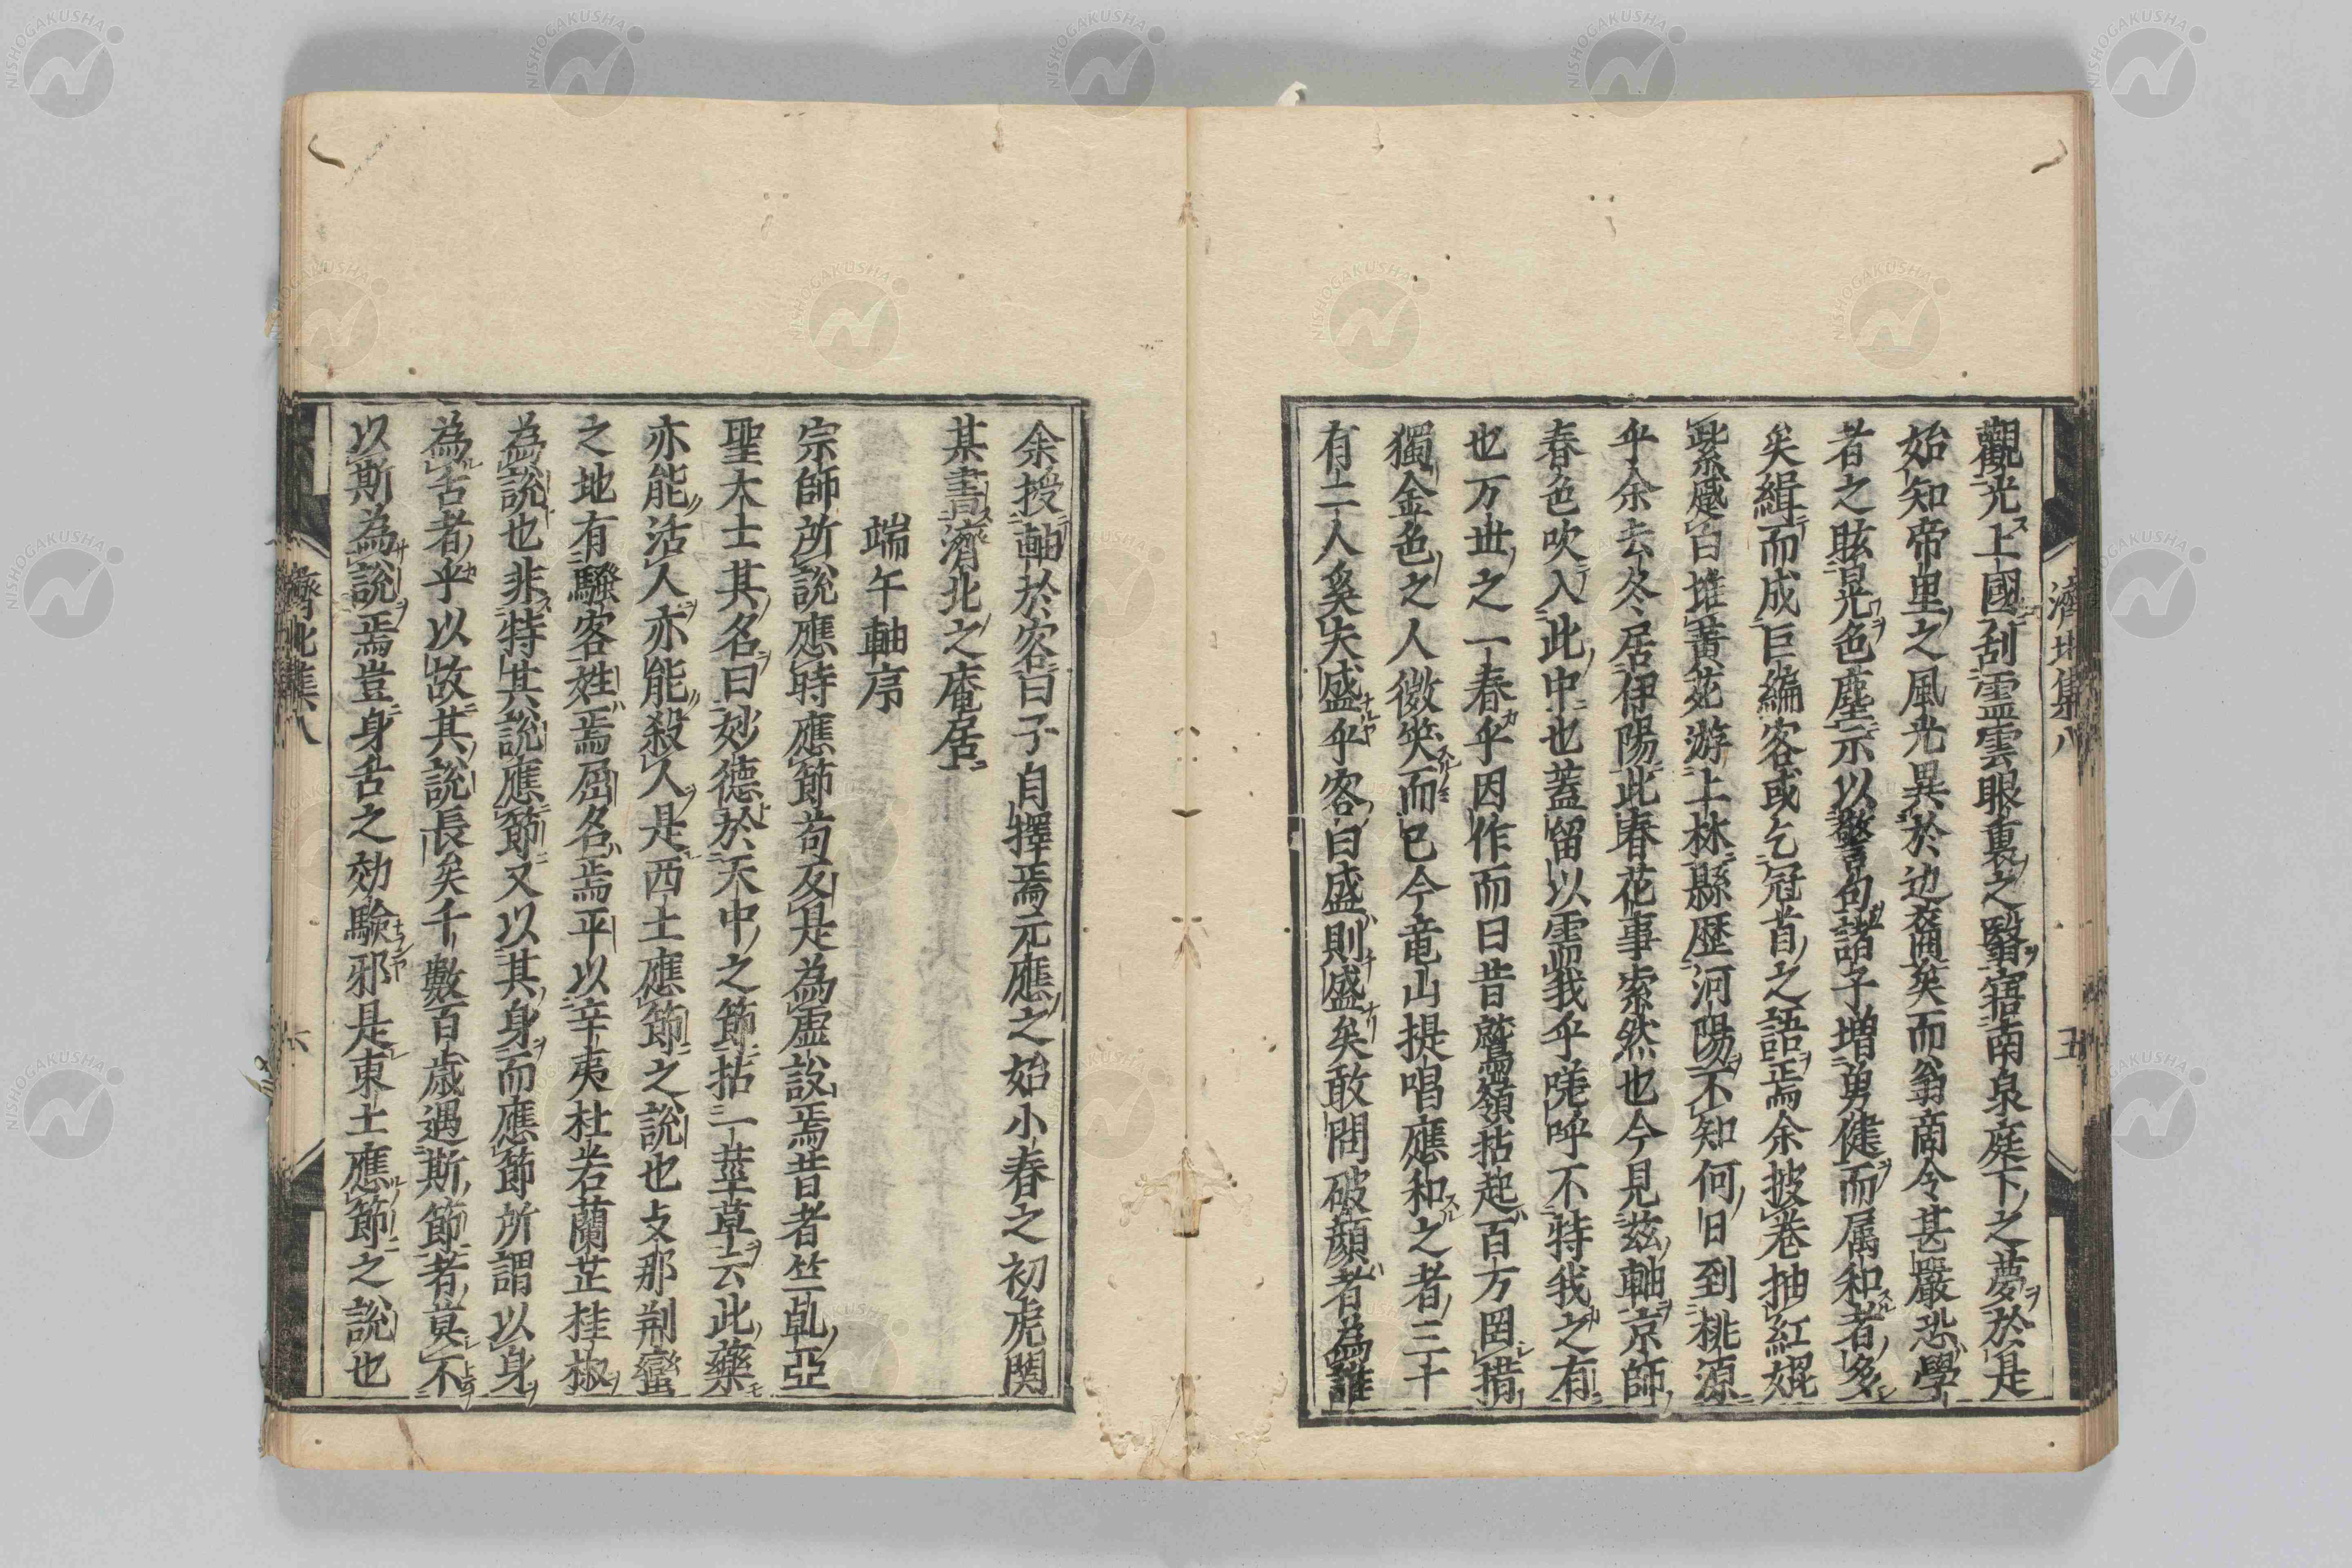 濟北集八
五
觀光上國刮霊雲眼裏之翳寤南泉庭下之夢於是
始知帝里之風光異於辺裔矣而翁商令甚嚴恐學
者之眩晃色塵示以警句諸子増勇健而属和者多
矣緝而成巨編客或乞冠首之語焉余披巻抽紅媲
紫蹙白堆黄苑游上林縣歴河陽不知何日到桃源
乎余去冬居伊陽此春花事索然也今見茲軸京師
春色吹入此中也蓋留以需我乎嗟呼不特我之有
也万世之一春乎因作而曰昔鷲嶺拈起百万罔措
獨金色之人微笑而已今竜山提唱應和之者三十
有二人奚夫盛乎客曰盛則盛矣敢問破顔者為誰
余授軸於客曰子自擇焉元應之始小春之初虎関
某書濟北之庵居
端午軸序
宗師所說應時應節苟及是為虚說焉昔者竺乹亞
聖大士其名曰妙德於天中之節拈一莖草云此藥
亦能活人亦能殺人是西土應節之說也支那荆蠻
之地有騷客姓焉屈名焉平以辛夷杜若蘭芷桂椒
為說也非特其說應節又以其身而應節所謂以身
為舌者乎以故其說長矣千數百歳遇斯節者莫不
以斯為說焉豈身舌之効驗邪是東土應節之說也
濟北集八
六